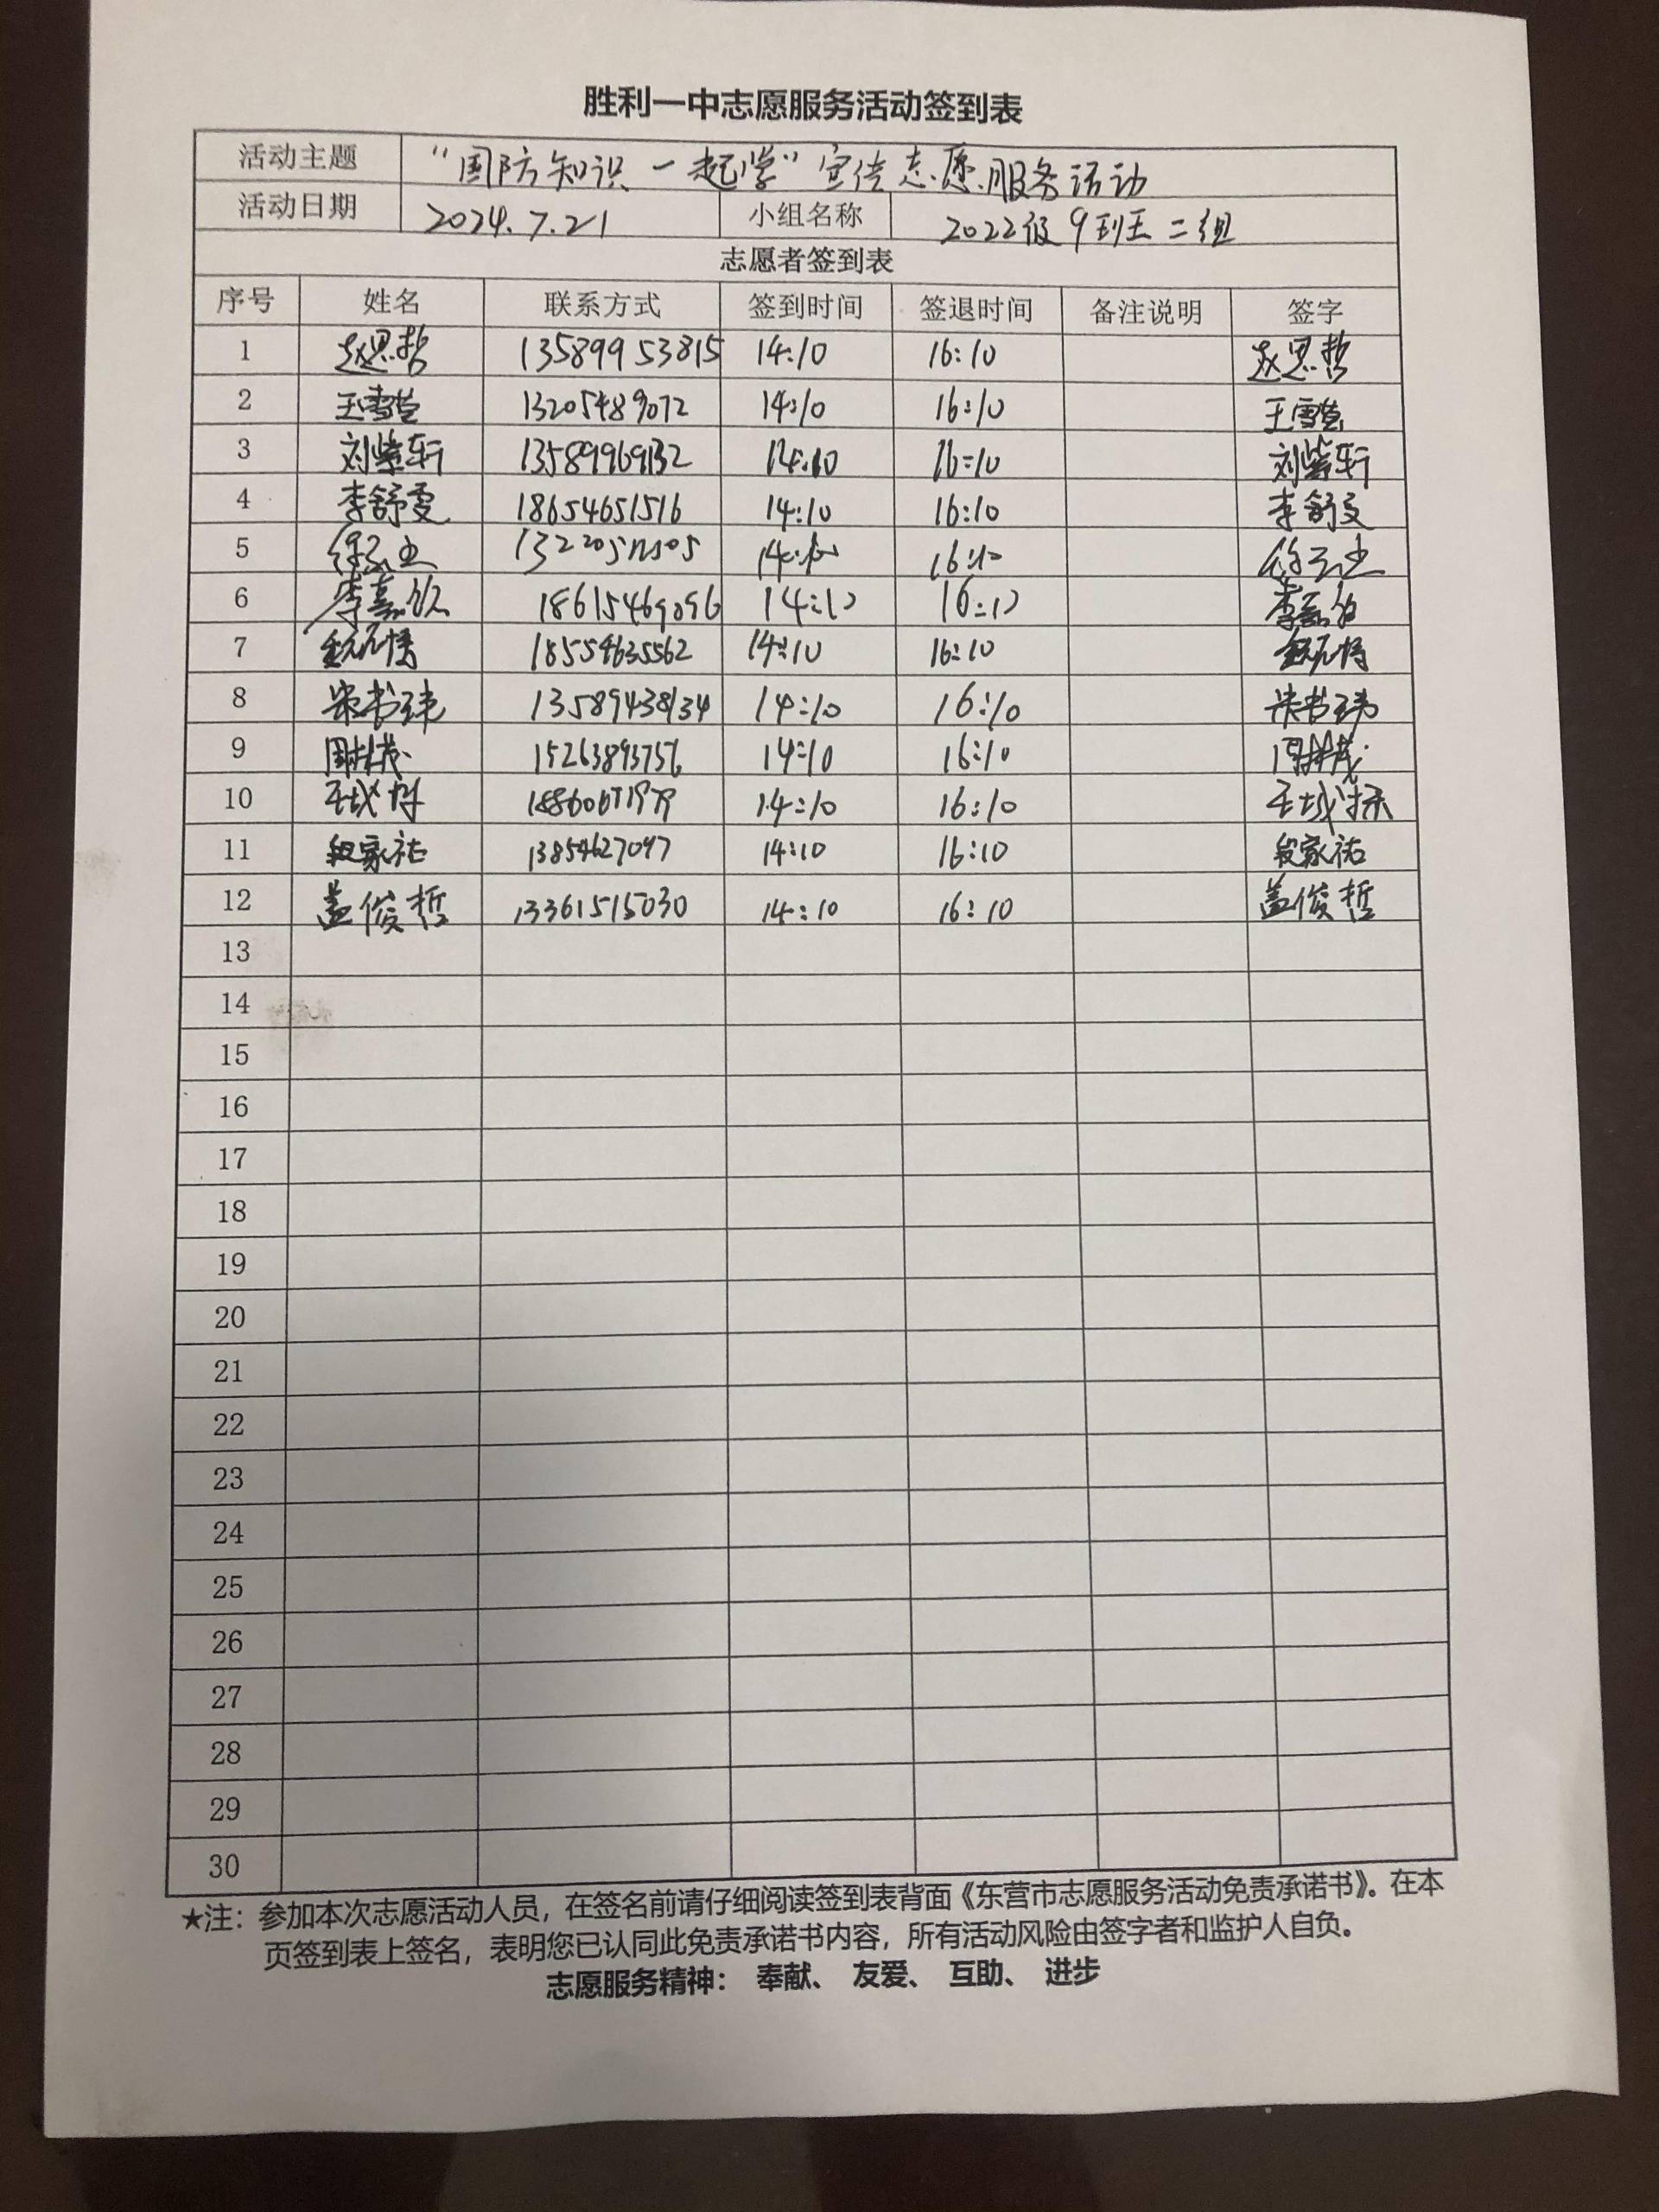 胜利一中志愿服务活动签到表
活动主题 “国防知识一起学”宣传志愿服务活动
活动日期 2024.7.21 小组名称 2022级9班 二组
志愿者签到表
序号 姓名 联系方式 签到时间 签退时间 备注说明 签字
1 赵思哲 13589953815 14:10 16:10 赵思哲
2 王雪萱 13205489072 14:10 16:10 王雪萱
3 刘紫轩 13589969132 14:10 16:10 刘紫轩
4 李舒雯 18654651516 14:10 16:10 李舒雯
5 14:10 16:10
6 18615469096 14:10 16:10
7 18554635562 14:10 16:10
8 宋书玮 13589438134 14:10 16:10 宋书玮
9 15263893756 14:10 16:10
10 14:10 16:10
11 段家祐 13854627097 14:10 16:10 段家祐
12 盖俊哲 13361515030 14:10 16:10 盖俊哲
13
14
15
16
17
18
19
20
21
22
23
24
25
26
27
28
29
30
★注：参加本次志愿活动人员，在签名前请仔细阅读签到表背面《东营市志愿服务活动免责承诺书》。在本
页签到表上签名，表明您已认同此免责承诺书内容，所有活动风险由签字者和监护人自负。
志愿服务精神： 奉献、 友爱、 互助、 进步